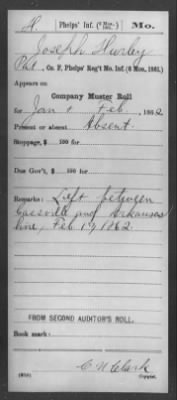 H. Phelps' Inf. (6 Mos., 1861.) Mo.
Joseph Hurley
Pvt., Co. F, Phelps' Reg't Mo. Inf. (6 Mos., 1861.)
Appears on
Company Muster Roll
for Jan & Feb, 1862
Present or absent Absent
Stoppage, $ 100 for
Due Gov't, $ 100 for
Remarks: Left between
Cassville and Arkansas
line, Feb 19, 1862
FROM SECOND AUDITOR'S ROLL.
Book mark:
C N Clark
Copyist.